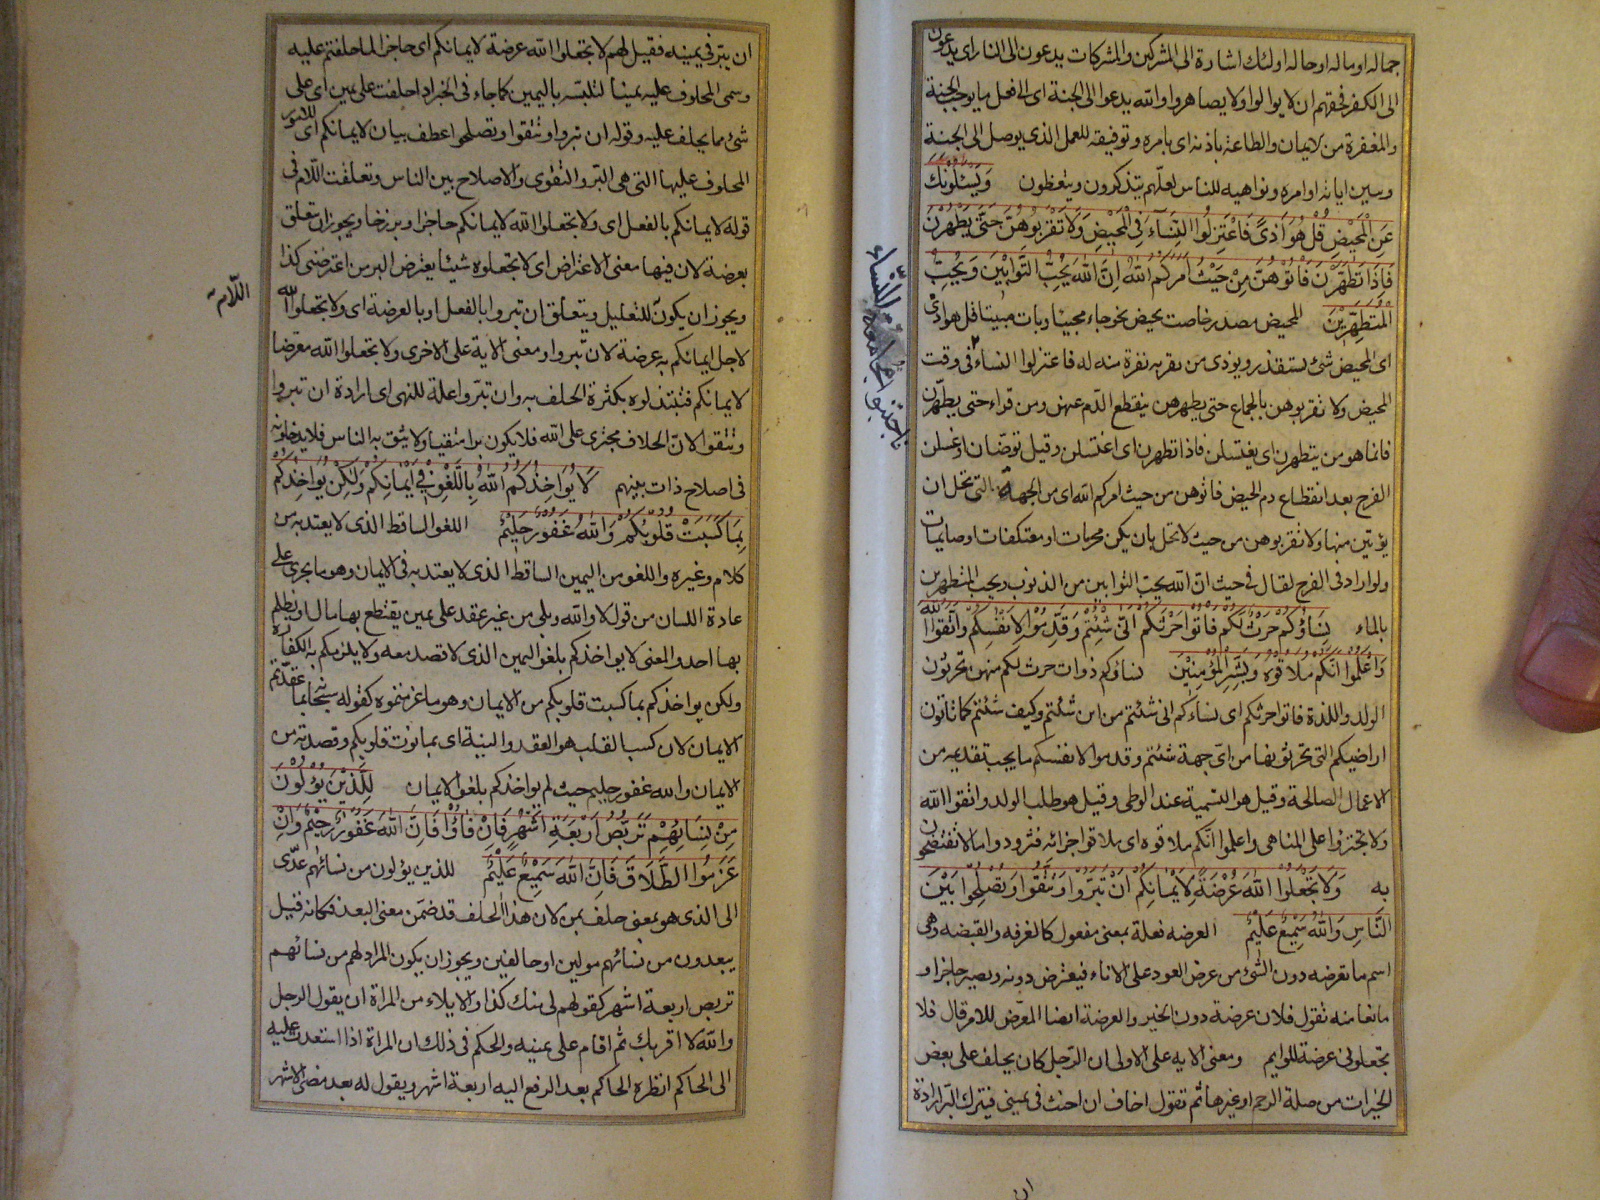 جماله او ماله او حاله اولئك اشارة الى المشركين والمشركات يدعون الى النار اى يدعون
الى الكفر فحقهم ان لا يوالوا ولا يصاهروا والله يدعوا الى الجنة اى الى فعل ما يوجب الجنة
والمغفرة من الايمان والطاعة باذنه اى بامره وتوفيقه للعمل الذى يوصل الى الجنة
ويبين اياته اوامره ونواهيه للناس لعلهم يتذكرون ويتعظون وَيَسْئَلُونَكَ
عَنِ الْمَحِيْضِ قُلْ هُوَ اَذىً فَاعْتَزِلُوا النِّسَآءَ فِي الْمَحِيْضِ وَلَا تَقْرَبُوْهُنَّ حَتّٰى يَطْهُرْنَ
فَاِذَا تَطَهَّرْنَ فَأْتُوْهُنَّ مِنْ حَيْثُ اَمَرَكُمُ اللّٰهُ اِنَّ اللّٰهَ يُحِبُّ التَّوَّابِيْنَ وَيُحِبُّ
الْمُتَطَهِّرِيْنَ المحيض مصدر حاضت تحيض نحو جاء مجيئا وبات مبيتا قل هو اذى
اى المحيض شئ يستقذر ويوذى من يقربه نفرة منه له فاعتزلوا النساء فى وقت
المحيض ولا تقربوهن بالجماع حتى يطهرهن ينقطع الدّم عنهن ومن قراء حتى يطّهّرن
فانما هو من يتطهرن اى يغتسلن فاذا تطهرن اى اغتسلن وقيل توضّان او غسلن
الفرج بعد انقطاع دم الحيض فاتوهن من حيث امركم الله اى من الجهة التى تحل ان
يؤتين منها ولا تقربوهن من حيث لا تحل بان يكن محرمات او معتكفات او صايمات
ولو اراد فى الفرج لقال فى حيث انّ الله يحبّ التوابين من الذنوب ويحب المتطهرين
بالماء نِسَاؤُكُمْ حَرْثٌ لَكُمْ فَأْتُوا حَرْثَكُمْ اَنّٰى شِئْتُمْ وَقَدِّمُوْا لِاَنْفُسِكُمْ وَاتَّقُوْا اللّٰهَ
وَاعْلَمُوْا اَنَّكُمْ مُلَاقُوْهُ وَبَشِّرِ الْمُؤْمِنِيْنَ نساؤكم ذوات حرث لكم منهن تحرثون
الولد واللذة فاتوا حرثكم اى نساءكم انى شئتم من اين شئتم وكيف شئتم كما تاتون
اراضيكم التى تحرثونها من اىّ جهة شئتم وقدموا لانفسكم ما يجب تقديمه من
الاعمال الصالحة وقيل هو التسمية عند الوطى وقيل هو طلب الولد واتقوا الله
ولا تجترؤا على المناهى واعلموا انّكم ملاقوه اى ملاقوا جزائه فتزودوا ما لا تفتضحون
به وَلَا تَجْعَلُوْا اللّٰهَ عُرْضَةً لِاَيْمَانِكُمْ اَنْ تَبَرُّوْا وَتَتَّقُوْا وَتُصْلِحُوْا بَيْنَ
النَّاسِ وَاللّٰهُ سَمِيْعٌ عَلِيْمٌ العرضه فعلة بمعنى مفعول كالغرفه والقبضه وهى
اسم ما تعرضه دون الشئ من عرض العود على الاناء فيعترض دونه ويصير حاجزا و
مانعا منه تقول فلان عرضة دون الخير والعرضة ايضا المعرّض للامر قال فلا
تجعلونى عرضة للوايم ومعنى الايه على الاولى ان الرّجل كان يحلف على بعض
الخيرات من صلة الرحم او غيرها ثم تقول اخاف ان احنث فى يمينى فيترك البّر ارادة
ان
فاجتنبوا مجامعة النّساء
ان يبّر فى يمينه فقيل لهم لا تجعلوا الله عرضة لايمانكم اى حاجزا لما حلفتم عليه
وسمى المحلوف عليه يمينا لتلبسّه باليمين كما جاء فى الخبر اذا حلفت على يمين اى على
شئ مما يحلف عليه وقوله ان تبروا وتتقوا وتصلحوا عطف بيان لايمانكم اى للامور
المحلوف عليها التى هى البّر والتقوى والاصلاح بين الناس وتعلقت اللّام فى
قوله لايمانكم بالفعل اى ولا تجعلوا الله لايمانكم حاجزا وبرزخا ويجوز ان يتعلق
بعرضة لان فيها معنى الاعتراض اى لا تجعلوه شيئا يعترض البر من اعترضنى كذا
ويجوز ان يكون للتعليل ويتعلّق ان تبروا بالفعل او بالعرضة اى ولا تجعلوا الله
لاجل ايمانكم به عرضة لان تّبروا ومعنى الاية على الاخرى ولا تجعلوا الله معرضا
لايمانكم فتبتذلوه بكثرة الحلف به وان تبّروا علة للنهى اى ارادة ان تبروا
وتتقوا لانّ الحلاف مجترئ على الله فلا يكون برا متقيا ولا يثق به الناس فلا يدخلونه
فى اصلاح ذات بينهم لَا يُوَاخِذُكُمُ اللّٰهُ بِاللَّغْوِ فِيْ اَيْمَانِكُمْ وَلٰكِنْ يُوَاخِذُكُمْ
بِمَا كَسَبَتْ قُلُوْبُكُمْ وَاللّٰهُ غَفُوْرٌ حَلِيْمٌ اللغو الساقط الذى لا يعتد به من
كلام وغيره واللغو من اليمين الساقط الذى لا يعتد به فى الايمان وهو ما يجرى على
عادة اللسان من قول لا والله وبلى من غير عقد على يمين يقتطع بها مال او يظلم
بها احد والمعنى لا يواخذكم بلغو اليمين الذى لا قصد معه ولا يلزمكم به الكفارة
ولكن يواخذكم بما كسبت قلوبكم من الايمان وهو ما عزمتموه كقوله سبحانه بما عقدّتم
الايمان لان كسب القلب هو العقد والنية اى بما نوت قلوبكم وقصدته من
الايمان والله غفور حليم حيث لم يواخذكم بلغو الايمان لِلَّذِيْنَ يُؤْلُوْنَ
مِنْ نِسَائِهِمْ تَرَبُّصُ اَرْبَعَةِ اَشْهُرٍ فَاِنْ فَاؤُا فَاِنَّ اللّٰهَ غَفُوْرٌ رَحِيْمٌ وَاِنْ
عَزَمُوْا الطَّلَاقَ فَاِنَّ اللّٰهَ سَمِيْعٌ عَلِيْمٌ للذين يؤلون من نسائهم عدّى
الى الذى هو بمعنى حلف بمن لان هذا الحلف قد ضمن معنى البعد فكانه قيل
يبعدون من نسائهم مولين او حالفين ويجوز ان يكون المراد لهم من نسائهم
تربص اربعة اشهر كقولهم لى منك كذا والايلاء من المراة ان يقول الرجل
والله لا اقربك ثم اقام على يمينه والحكم فى ذلك ان المراة اذا استعدت عليه
الى الحاكم انظره الحاكم بعد الرفع اليه اربعة اشهر ويقول له بعد مضى الاشهر
اللّام